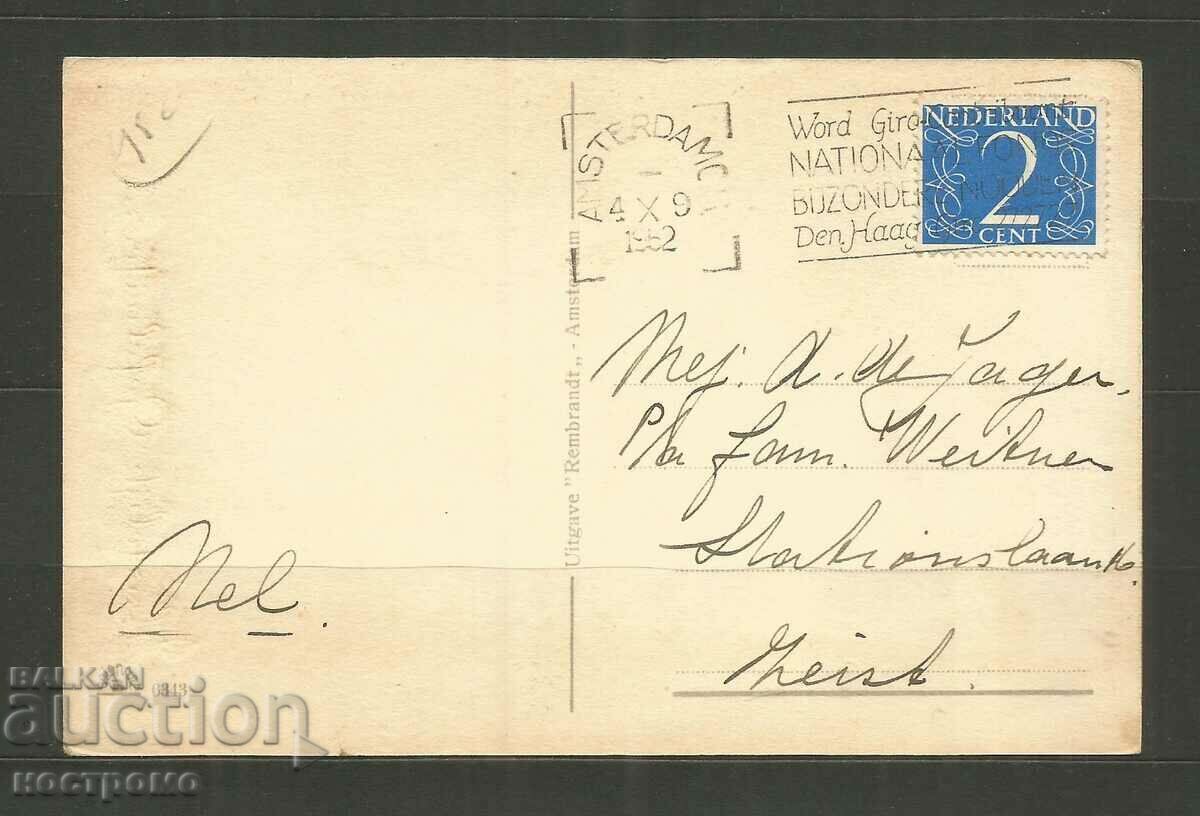 15c
AMSTERDAM C.S.
4 X 9
1952
Word Giro
NATIONAAL FONDS
BIJZONDERE NODEN
Den Haag
NEDERLAND
2
CENT
Uitgave "Rembrandt" - Amsterdam
Mej. A. de Jager.
P/a fam. Weitner
Stationslaan
Zeist.
Nel.
6343
BALKAN
auction
КОСТРОМО